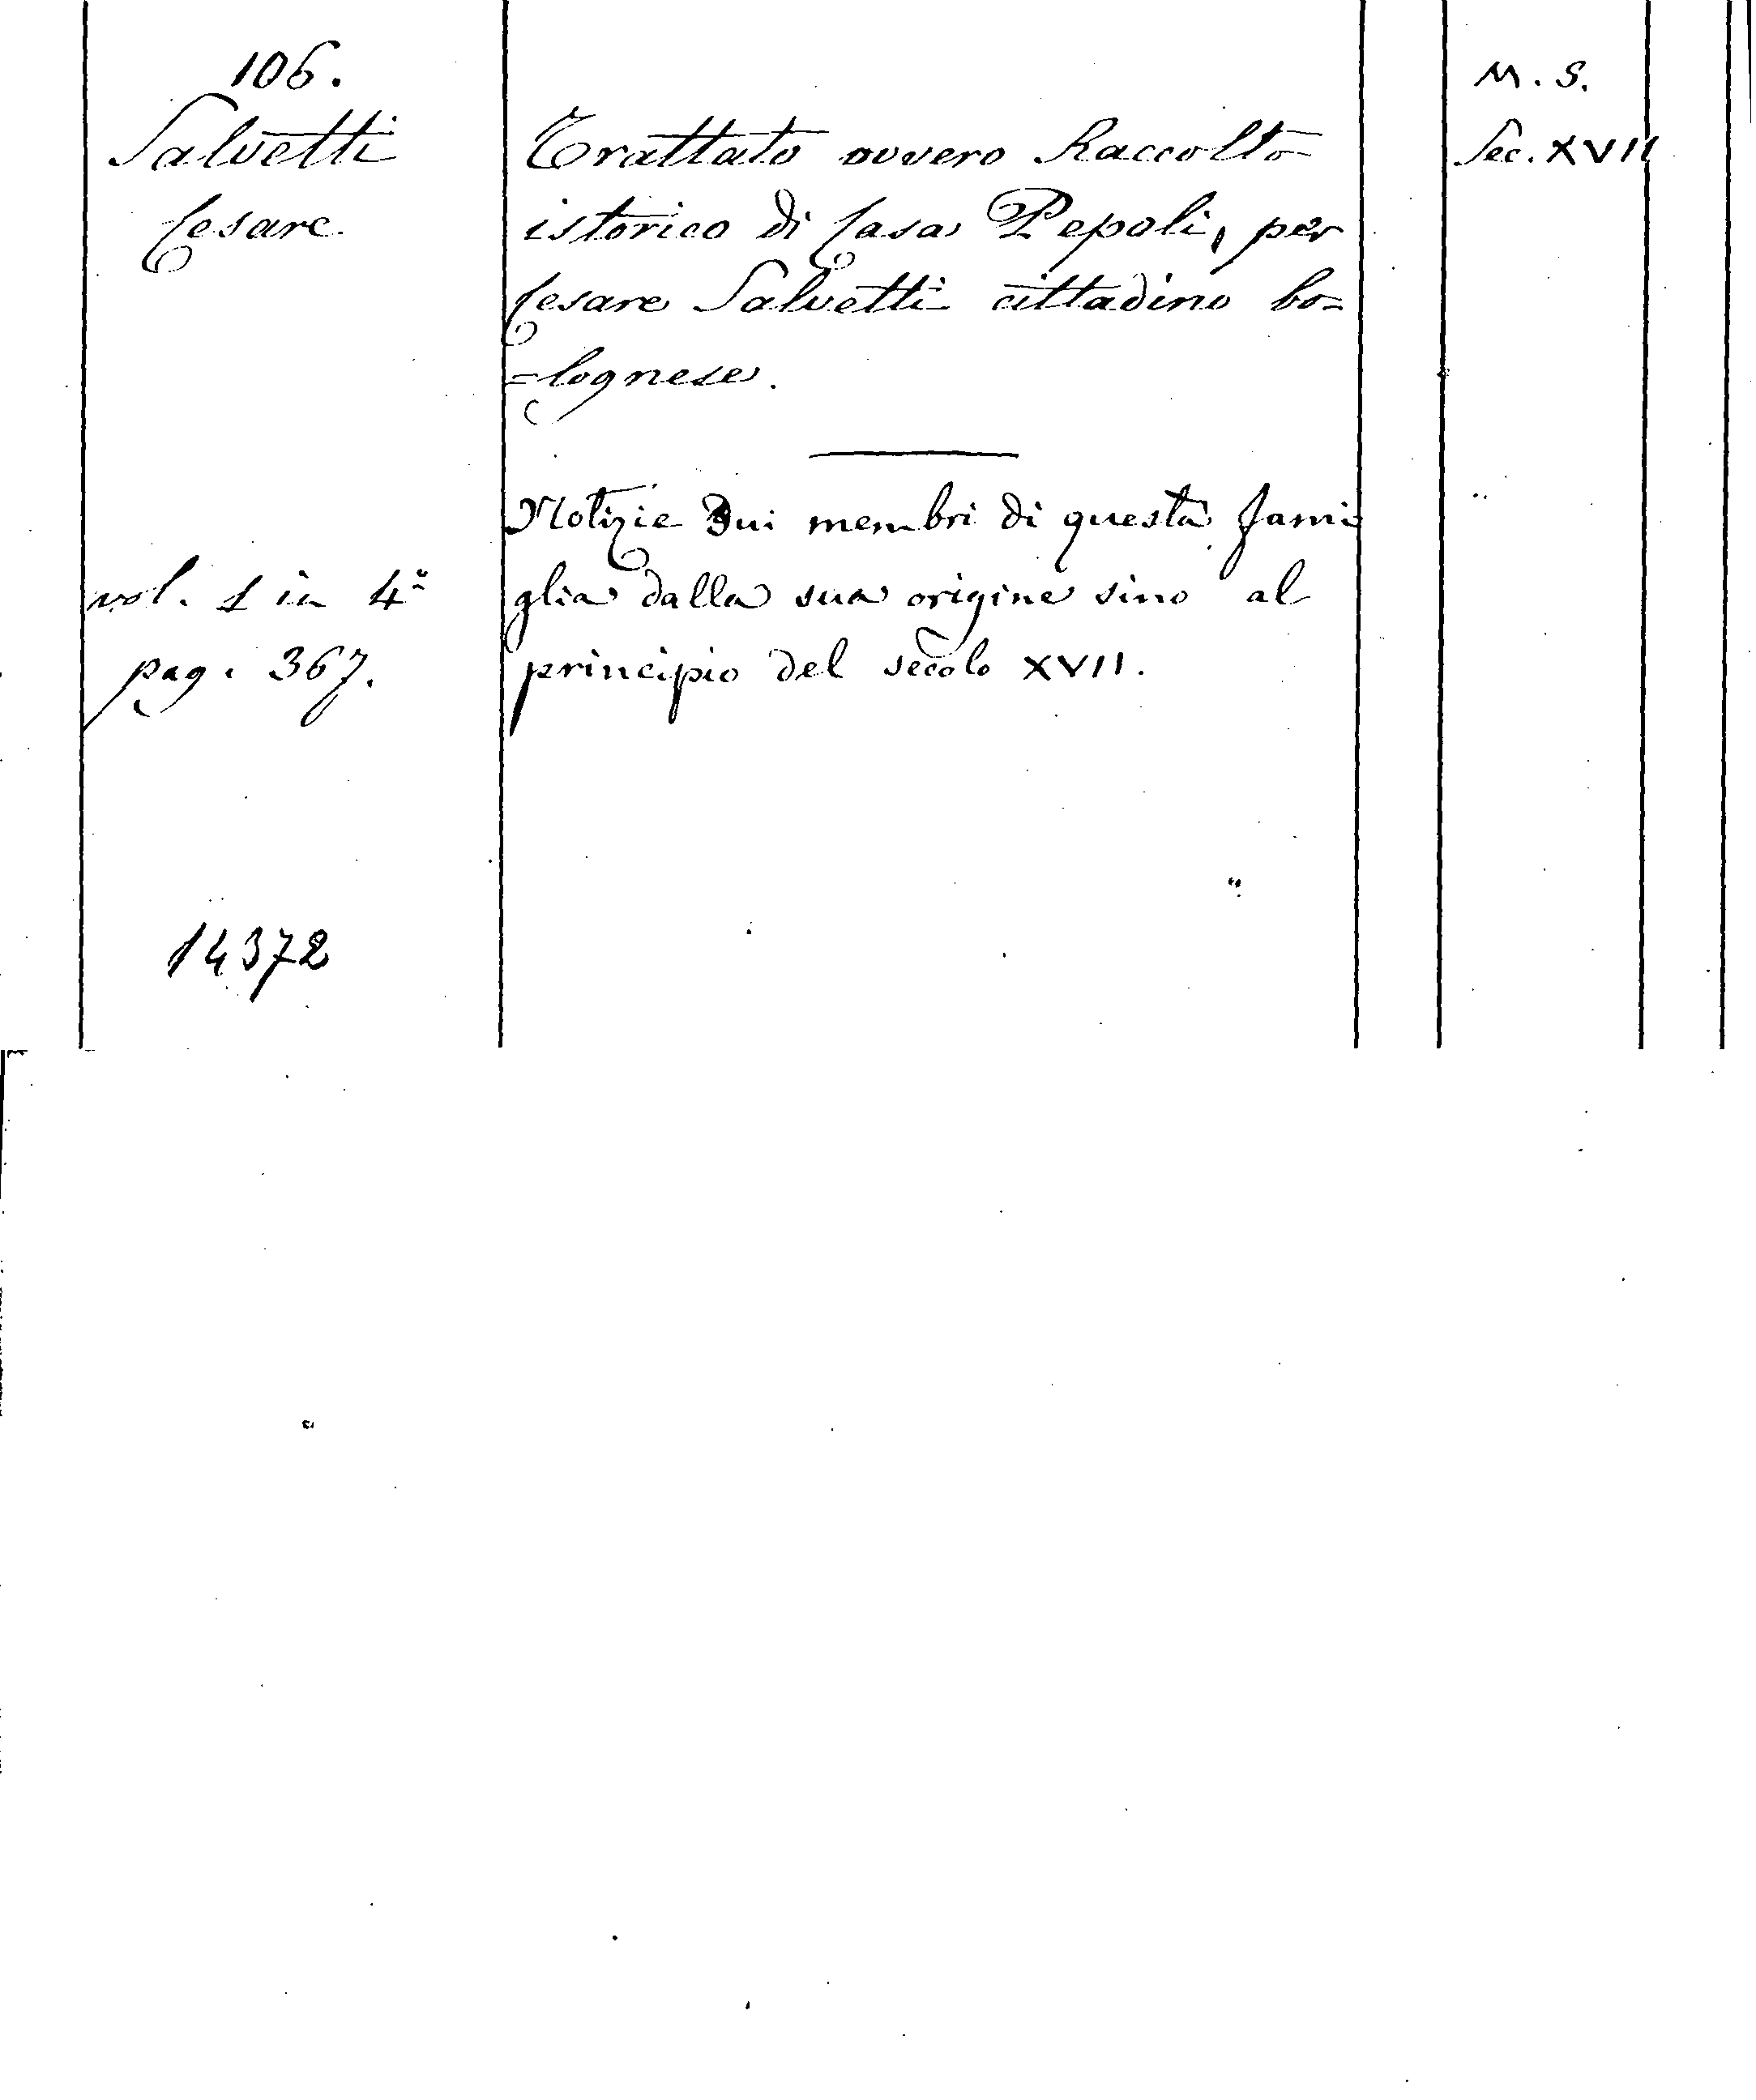 106.
Salvetti
Cesare
vol. 1 in 4º
pag. 367.
14372
Trattato ovvero Raccolto
istorico di Casa Pepoli, per
Cesare Salvetti cittadino bo=
=lognese.
Notizie sui membri di questa fami
glia dalla sua origine sino al
principio del secolo XVII.
M. S.
Sec. XVII